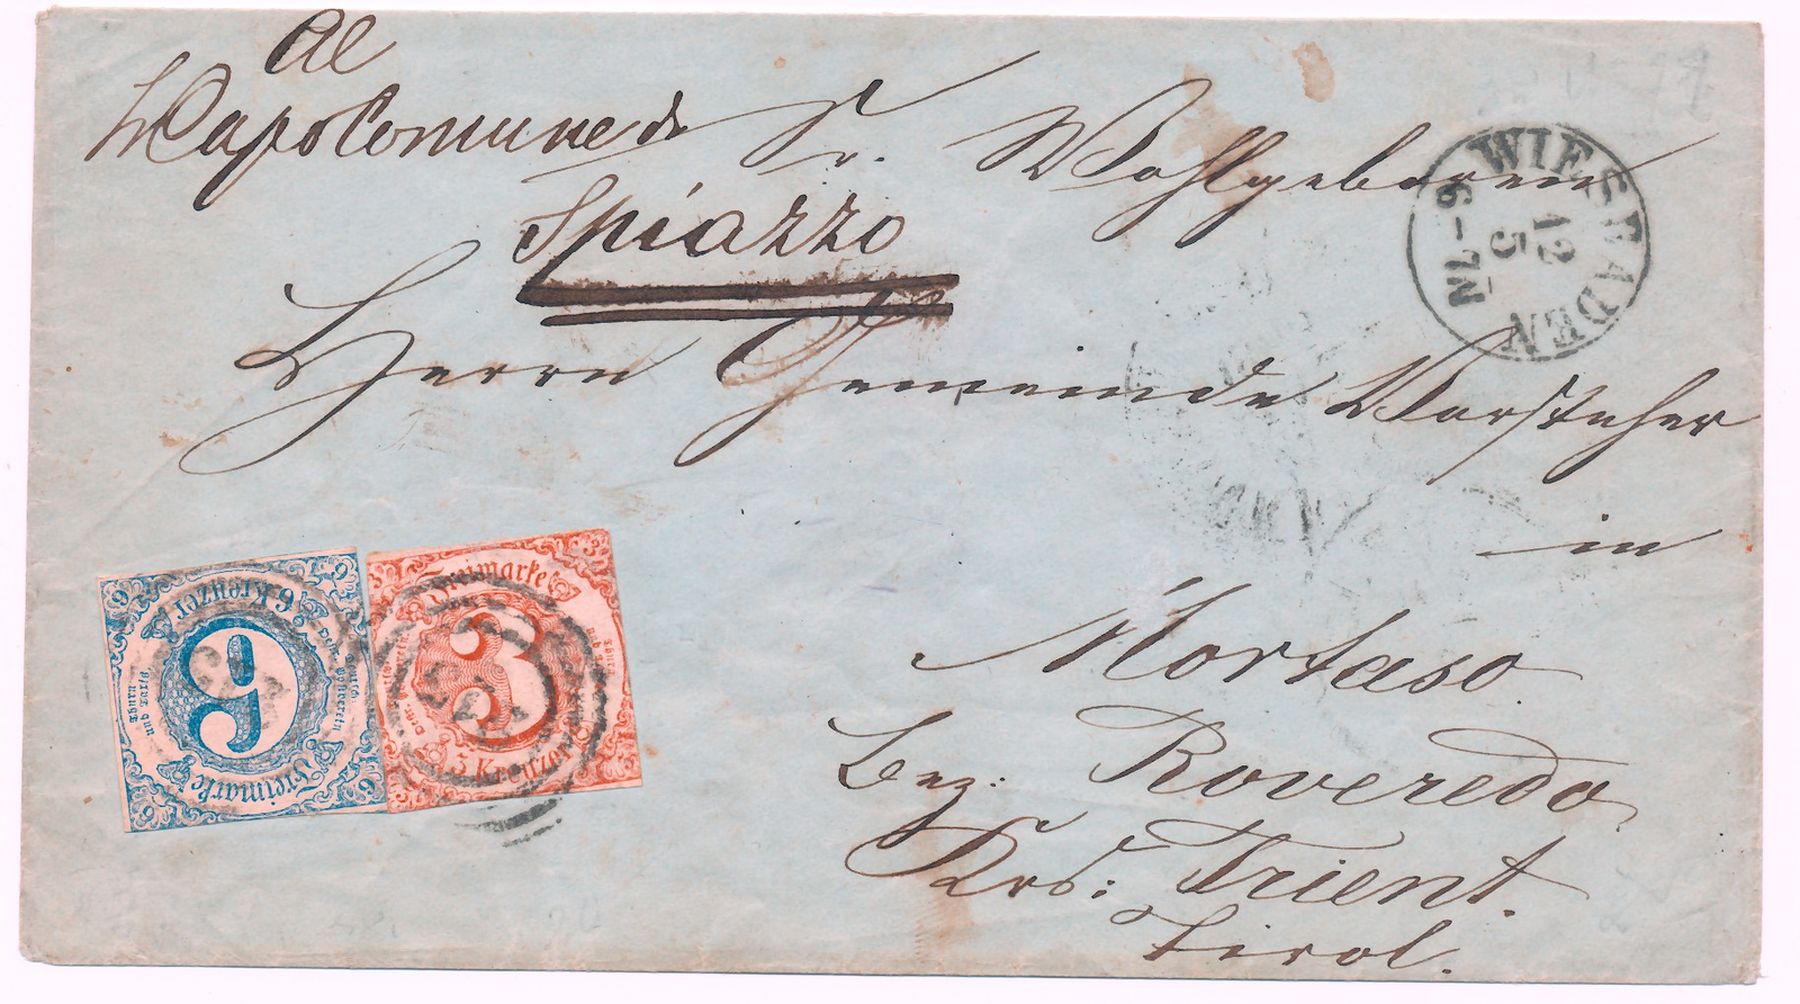 Al
Capocomune di
Spiazzo
Sr. Wohlgeboren
Herrn Gemeinde Vorsteher
in
Mortaso
Bez: Roveredo
Krs: Trient.
Tirol.
WIESBADEN
12
5
6-7N
6 Kreuzer
6
Freimarke
Freimarke
3
3 Kreuzer